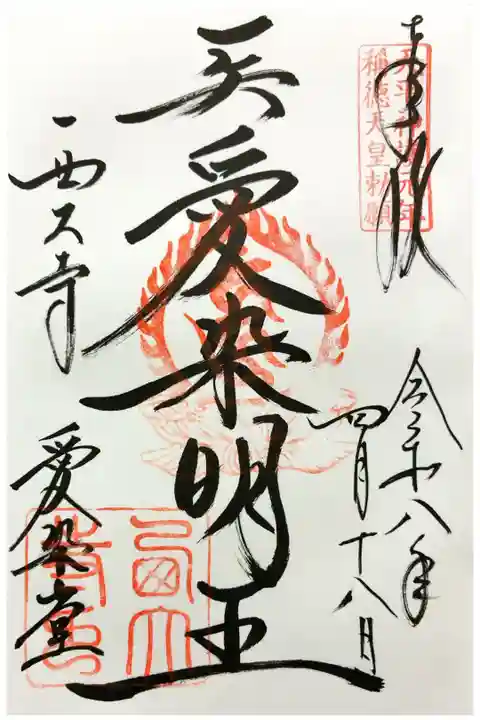 奉拝
天平神護元年
稱徳天皇勅願
令和八年
四月十八日
愛染明王
西大寺
愛染堂